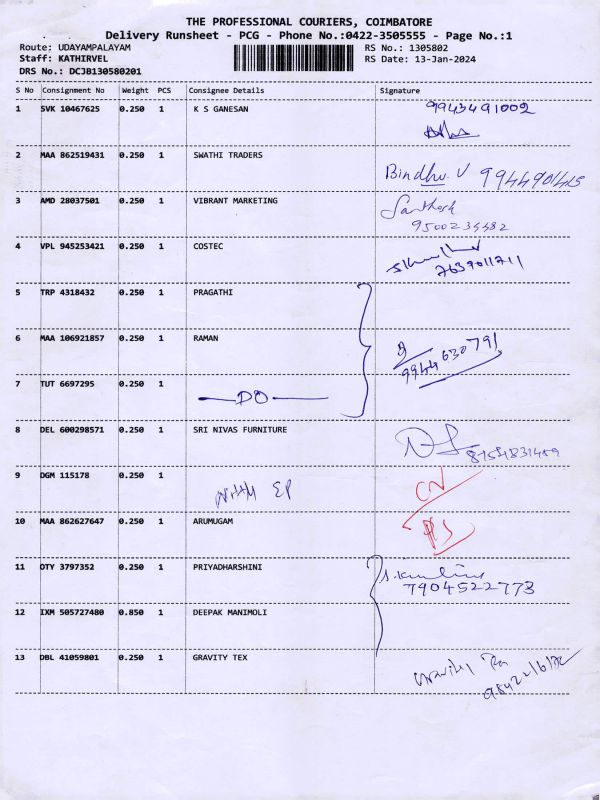 THE PROFESSIONAL COURIERS, COIMBATORE
Delivery Runsheet - PCG - Phone No.:0422-3505555 - Page No.:1
Route: UDAYAMPALAYAM RS No.: 1305802
Staff: KATHIRVEL RS Date: 13-Jan-2024
DRS No.: DCJB130580201
S No Consignment No Weight PCS Consignee Details Signature
1 SVK 10467625 0.250 1 K S GANESAN 9943491002
2 MAA 862519431 0.250 1 SWATHI TRADERS
Bindhu V 9944901415
3 AMD 28037501 0.250 1 VIBRANT MARKETING Santhosh
9500234482
4 VPL 945253421 0.250 1 COSTEC
7639011711
5 TRP 4318432 0.250 1 PRAGATHI
6 MAA 106921857 0.250 1 RAMAN
9944630791
7 TUT 6697295 0.250 1
DO
8 DEL 600298571 0.250 1 SRI NIVAS FURNITURE
9 DGM 115178 0.250 1
EP CN
10 MAA 862627647 0.250 1 ARUMUGAM
11 OTY 3797352 0.250 1 PRIYADHARSHINI
7904522773
12 IXM 505727480 0.850 1 DEEPAK MANIMOLI
13 DBL 41059801 0.250 1 GRAVITY TEX
Gravity Tex